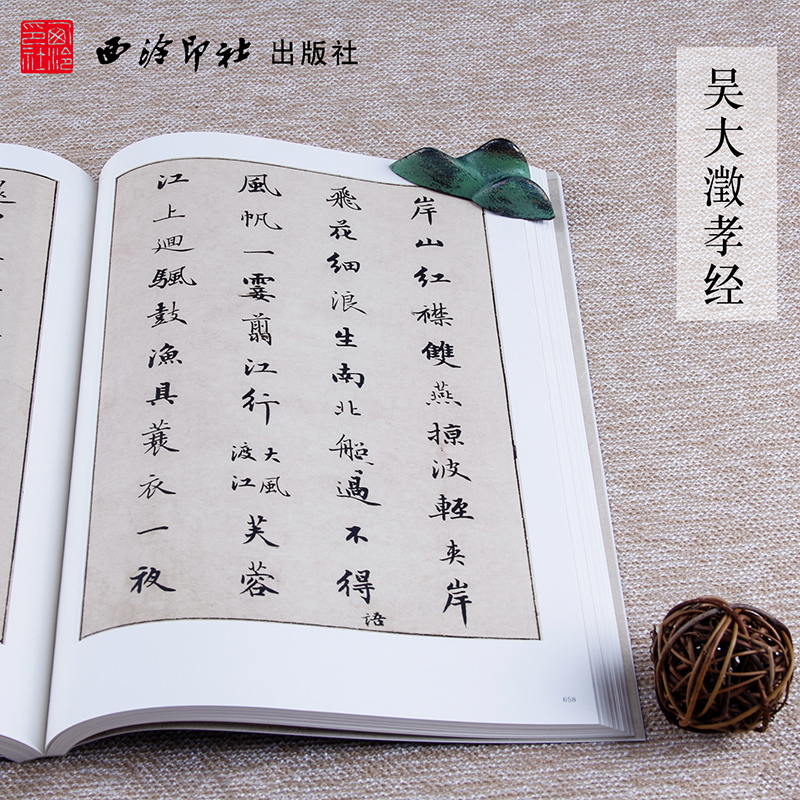 西泠印社
西泠印社 出版社
吴大澂孝经
岸山紅襟雙燕掠波輕夾岸
飛花細浪生南北船過不得
語
風帆一霎翦江行大風渡江芙蓉
江上迴颿鼓漁具蓑衣一夜
658